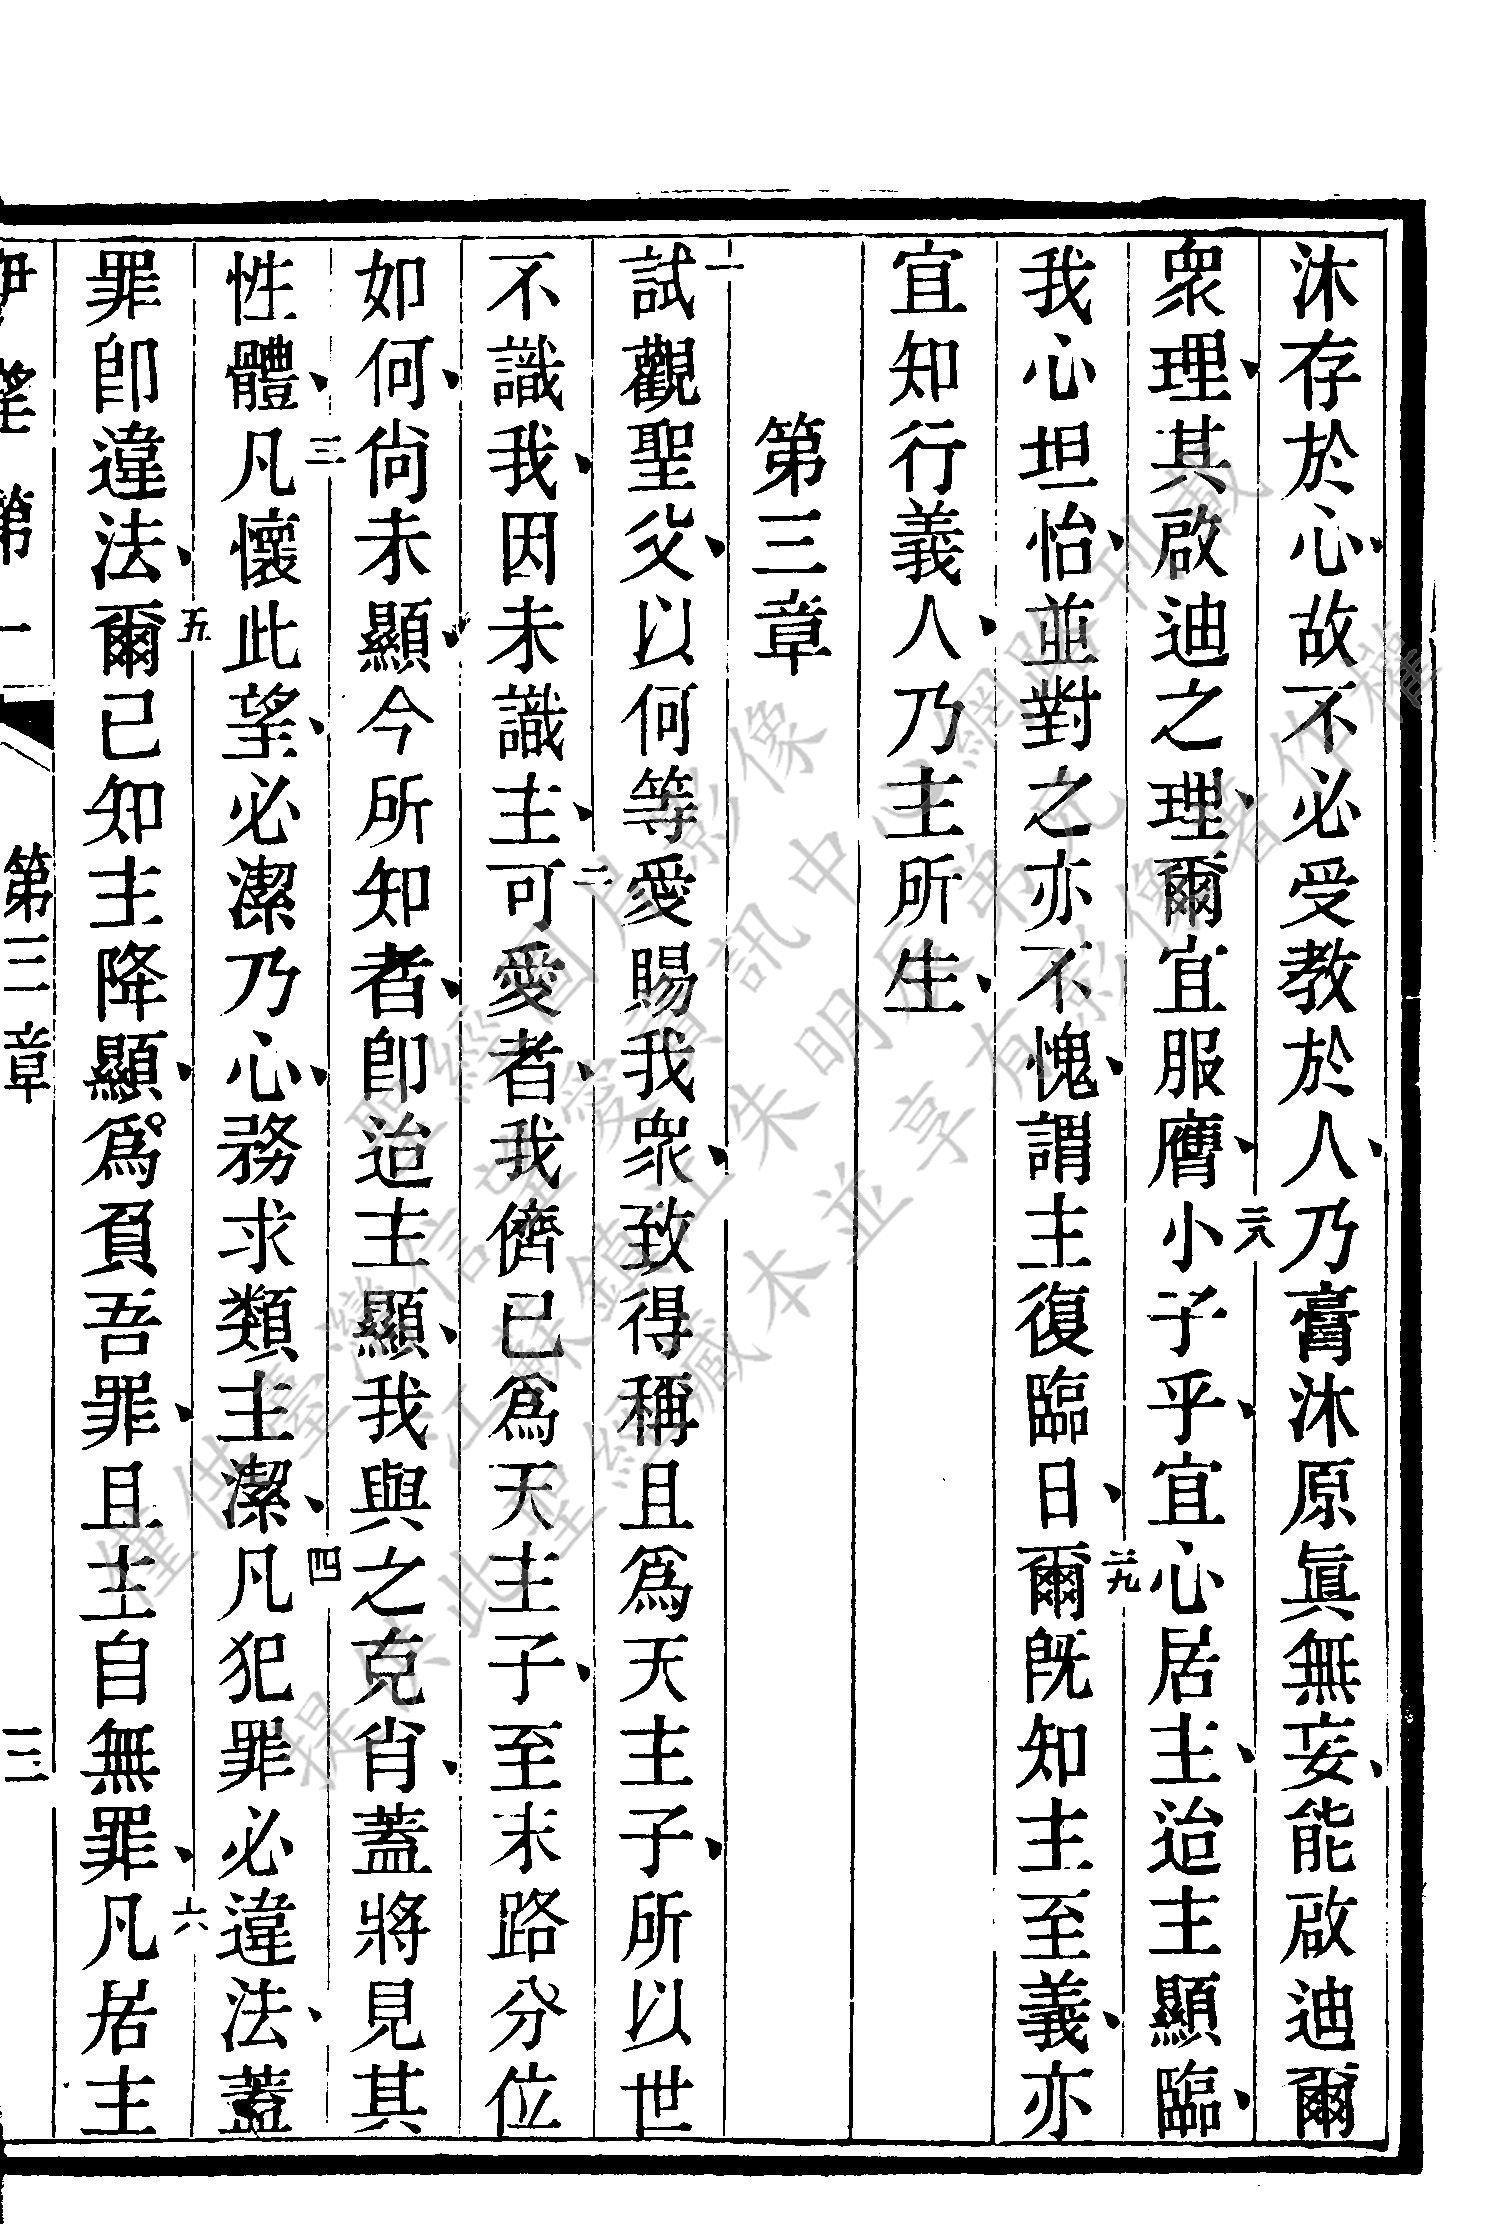 沐存於心、故不必受教於人、乃膏沐原眞無妄、能啟迪爾
衆理、其啟迪之理、爾宜服膺、二八小子乎、宜心居主、迨主顯臨、
我心坦怡、並對之亦不愧、謂主復臨日、二九爾旣知主至義、亦
宜知行義人、乃主所生、
第三章
一試觀聖父、以何等愛賜我衆、致得稱且爲天主子、所以世
不識我、因未識主、二可愛者、我儕已爲天主子、至末路分位
如何、尙未顯、今所知者、卽迨主顯、我與之克肖、蓋將見其
性體、三凡懷此望、必潔乃心、務求類主潔、四凡犯罪必違法、蓋
罪卽違法、五爾已知主降顯、爲負吾罪、且主自無罪、六凡居主
伊望第一 第三章 三
聖經圖影像
僅供臺灣信望愛資訊中心網際刊載
江蘇鎮江朱明弟兄
提供此聖經藏本並享有影像著作權